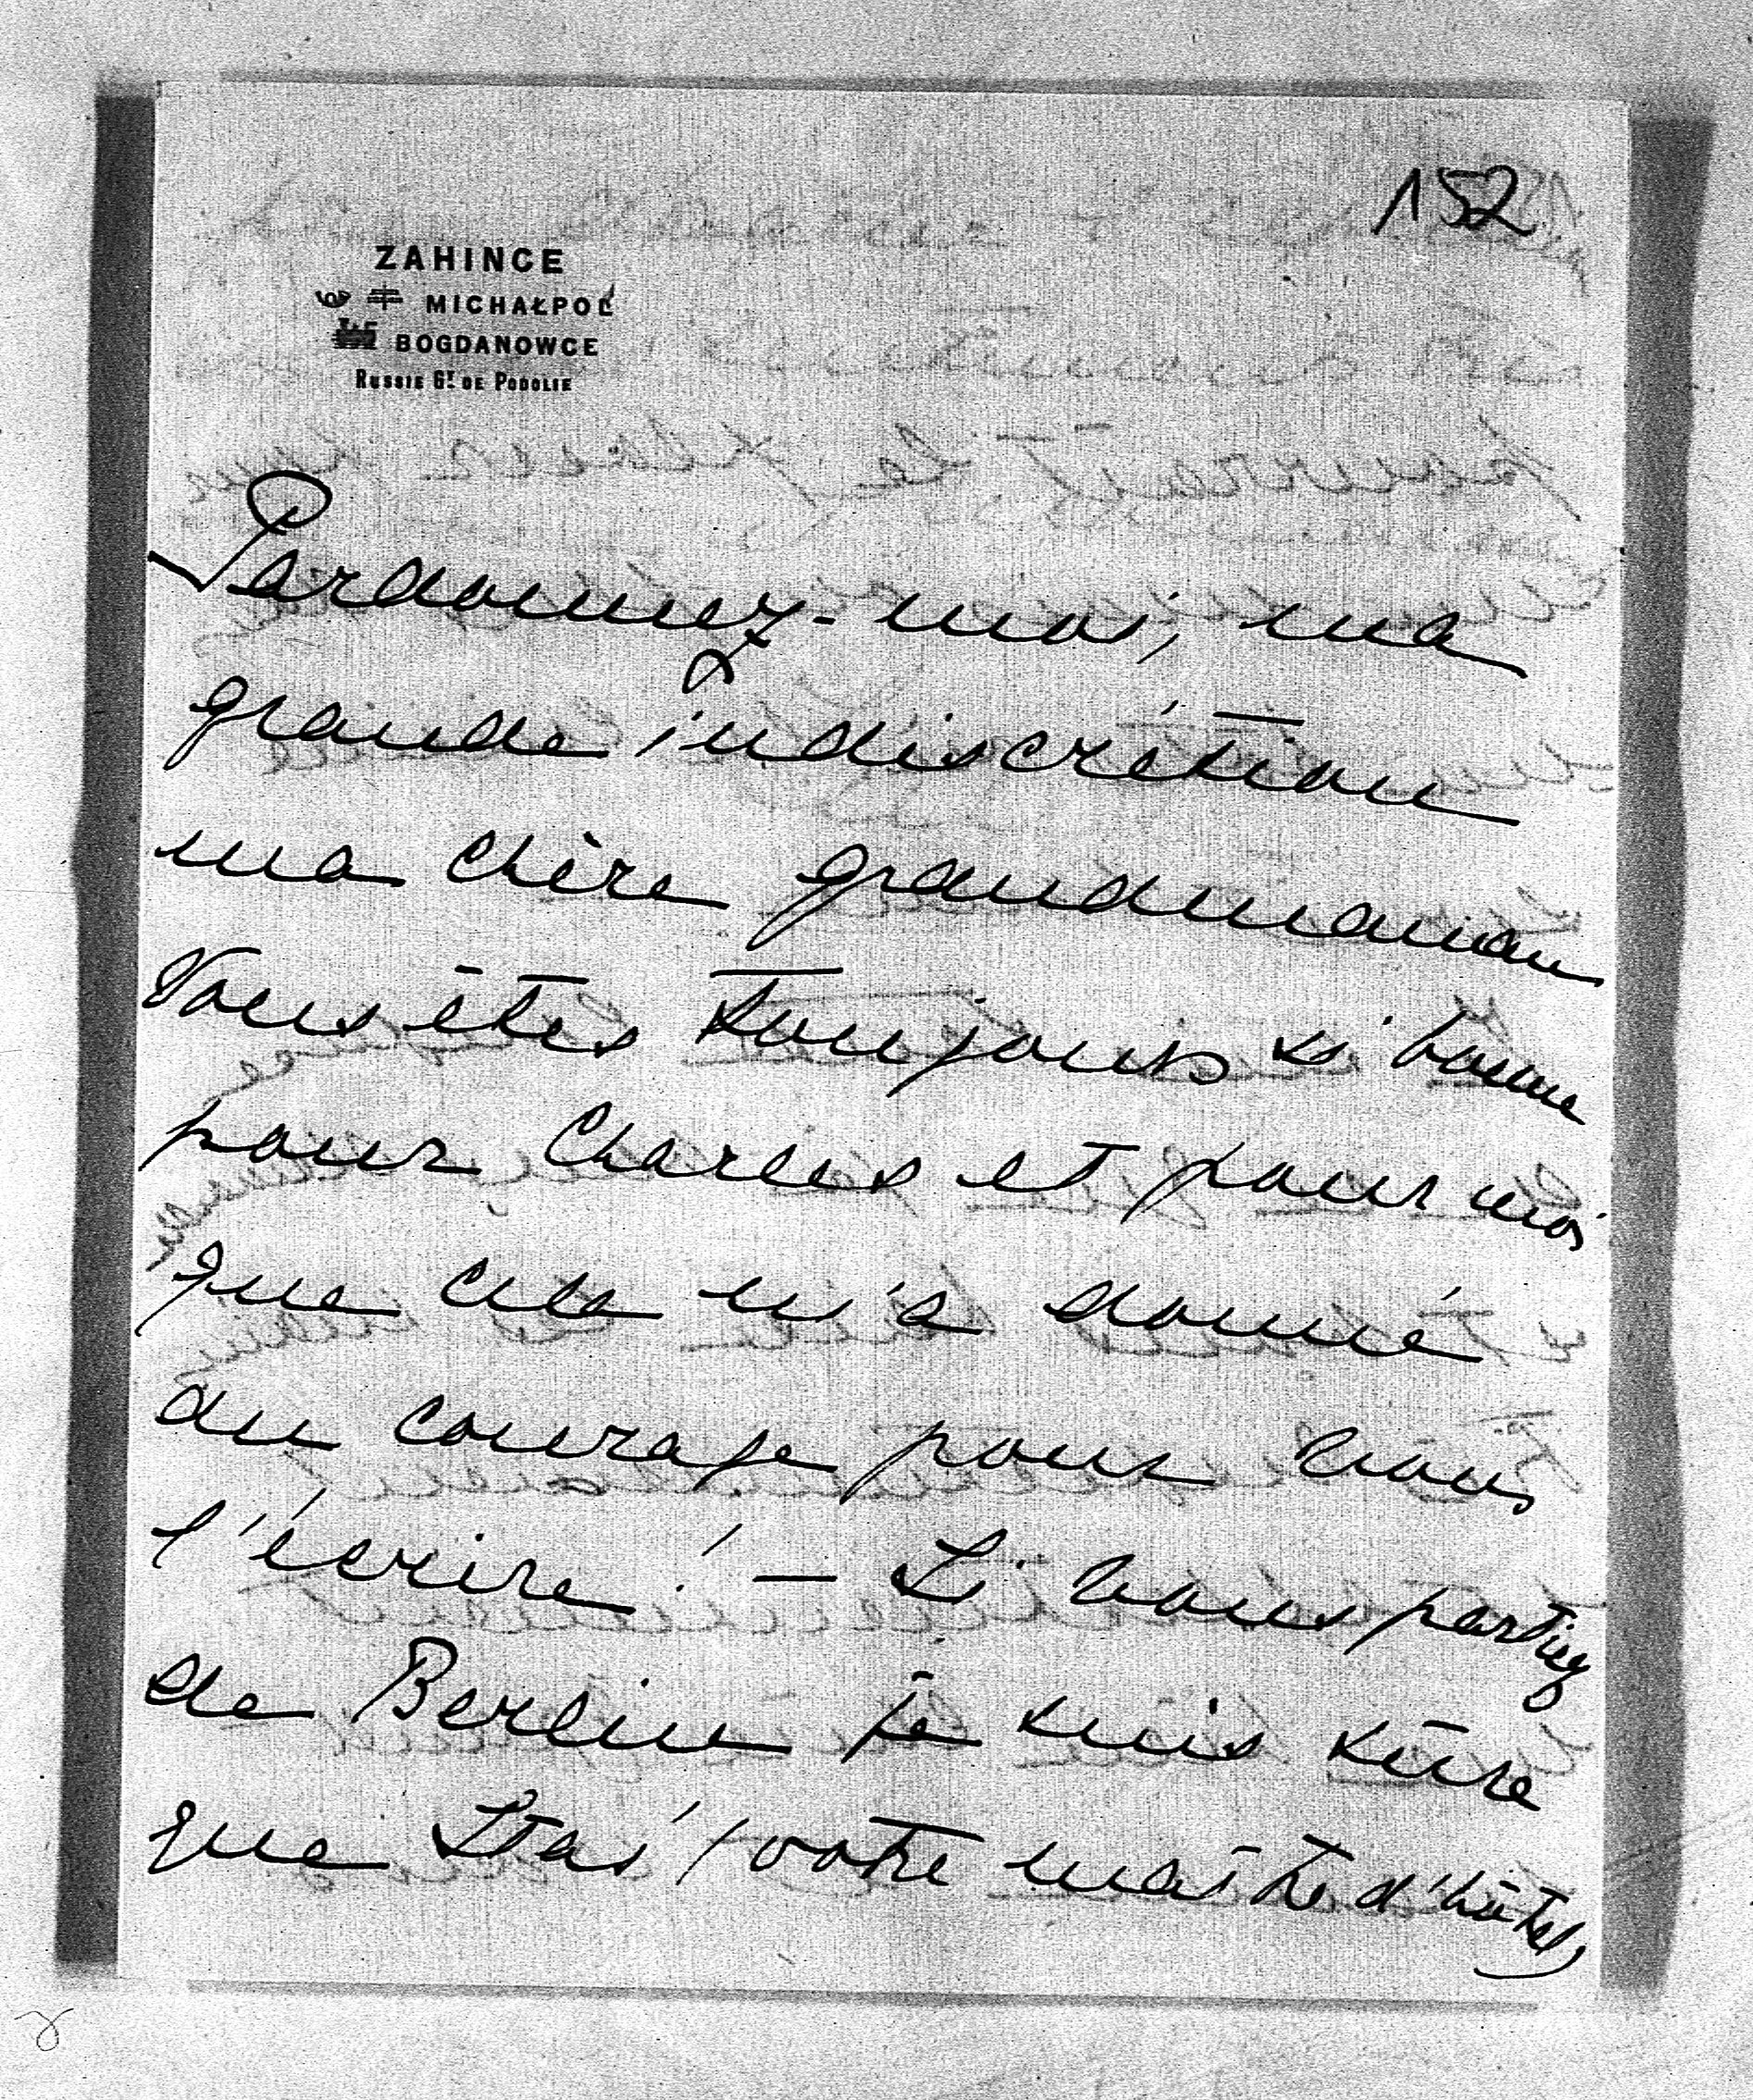 152
ZAHINCE
MICHAŁPOL
BOGDANOWCE
RUSSIE Gt DE PODOLIE
Pardonnez-moi, ma
grande indiscrétion
ma chère grandmaman
Vous êtes toujours si bonne
pour Charles et pour moi
que cela m'a donné
du courage pour vous
l'écrire! — Si vous partiez
de Berlin je suis sûre
que Staś (votre maître d'hôtel)